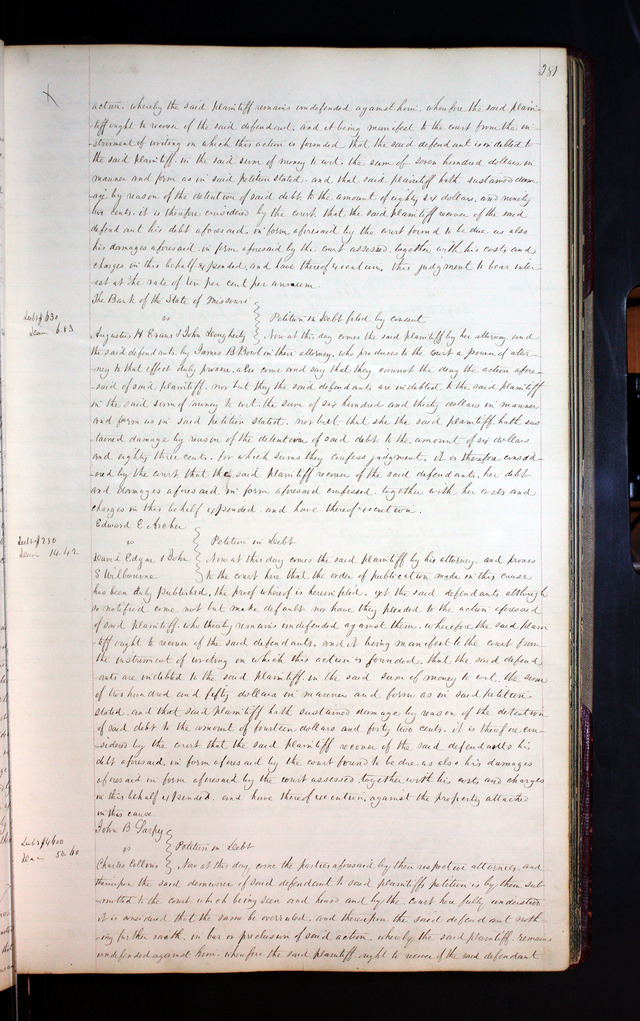 281
action, whereby the said plaintiff remains undefended against him, wherefore the said plain-
tiff ought to recover of the said defendant. and it being manifest to the court from the in-
strument of writing on which this action is founded that the said defendant is indebted to
the said plaintiff in the said sum of money to wit. the sum of seven hundred dollars. in
manner and form as in said petition stated. and that said plaintiff hath sustained dam-
age by reason of the detention of said debt to the amount of eighty six dollars, and ninety
two cents. it is therefore considered by the court that the said plaintiff recover of the said
defendant his debt aforesaid, in form aforesaid by the court found to be due as also
his damages aforesaid in form aforesaid by the court assessed, together with his costs and
charges in this behalf expended, and have thereof execution, this judgment to bear inter-
est at the rate of ten per cent per annum.
The Bank of the State of Missouri
Debt $630
vs Petition in Debt filed by consent
Dam 6.83
Augustus H Evans & John Dougherty Now at this day comes the said plaintiff by her attorney and
the said defendants by James B Bowlin their attorney, who produces to the court a power of attor-
ney to that effect duly proven. also come and say that they cannot the deny the action afore-
said of said plaintiff. nor but they the said defendants are indebted to the said plaintiff
in the said sum of money to wit. the sum of six hundred and thirty dollars in manner
and form as in said petition stated. nor but that she the said plaintiff hath sus
tained damage by reason of the detention of said debt to the amount of six dollars
and eighty three cents. for which sums they confess judgment. it is therefore consid-
ered by the court that the said plaintiff recover of the said defendants. her debt
and damages aforesaid in form aforesaid confessed. together with her costs and
charges in this behalf expended. and have thereof execution.
Edward E Archer
Debt $250
vs Petition in Debt
Dam 14.42
David Edgar & John Now at this day comes the said plaintiff by his attorney. and proves
S Wilbourne to the court here that the order of publication made in this cause
has been duly published, the proof whereof is herein filed. yet the said defendants although
so notified come not but make default nor have they pleaded to the action aforesaid
of said plaintiff. who thereby remains undefended against them. wherefore the said plain
tiff ought to recover of the said defendants. and it being manifest to the court from
the instrument of writing on which this action is founded, that the said defend
ants are indebted to the said plaintiff. in the said sum of money to wit. the sum
of two hundred and fifty dollars in manner and form as in said petition
stated. and that said plaintiff hath sustained damage by reason of the detention
of said debt to the amount of fourteen dollars and forty two cents. it is therefore con-
sidered by the court that the said plaintiff recover of the said defendants his
debt aforesaid, in form aforesaid by the court found to be due. as also his damages
aforesaid in form aforesaid by the court assessed, together with his costs and charges
in this behalf expended. and have thereof execution, against the property attached
in this cause
John B Sarpy
Debt $600
vs Petition in Debt
Dam 50.60
Charles Collins Now at this day, come the parties aforesaid by their respective attorneys, and
thereupon the said demurrer of said defendant to said plaintiffs petition is by them sub-
mitted to the court which being seen and heard and by the court here fully understood
it is considered that the same be overruled. and thereupon the said defendant noth-
ing further saith, in bar or preclusion of said action. whereby the said plaintiff. remains
undefended against him. wherefore the said plaintiff. ought to recover of the said defendant